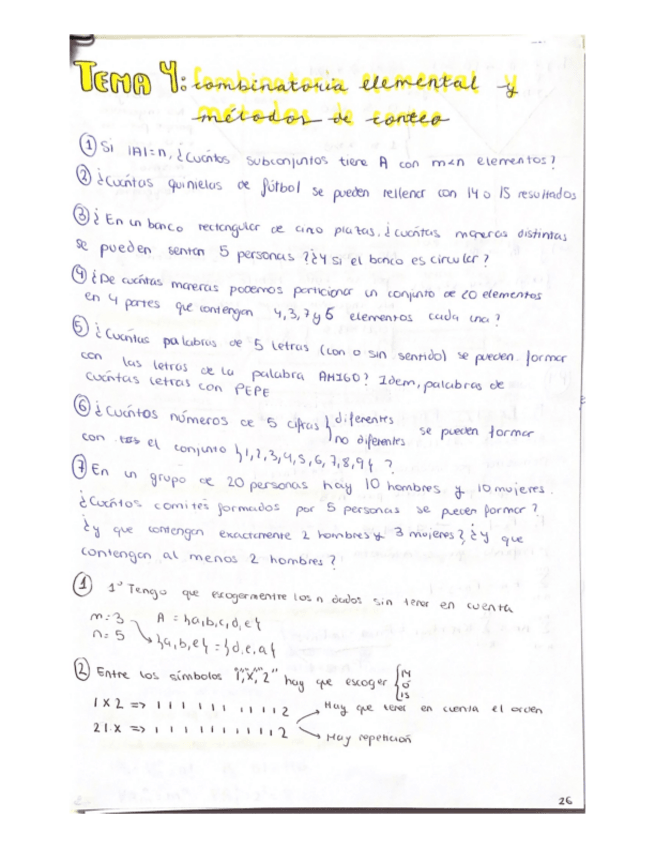 TEMA 4: Combinatoria elemental y
métodos de conteo
① Si |A|=n, ¿Cuántos subconjuntos tiene A con m<n elementos?
② ¿Cuántas quinielas de fútbol se pueden rellenar con 14 o 15 resultados
③ ¿En un banco rectangular de cinco plazas, ¿cuántas maneras distintas
se pueden sentar 5 personas? ¿Y si el banco es circular?
④ ¿De cuántas maneras podemos particionar un conjunto de 20 elementos
en 4 partes que contengan 4, 3, 7 y 6 elementos cada una?
⑤ ¿Cuántas palabras de 5 letras (con o sin sentido) se pueden formar
con las letras de la palabra AMIGO? Idem, palabras de
cuántas letras con PEPE
⑥ ¿Cuántos números de 5 cifras { diferentes
no diferentes se pueden formar
con el conjunto {1,2,3,4,5,6,7,8,9}?
⑦ En un grupo de 20 personas hay 10 hombres y 10 mujeres.
¿Cuántos comités formados por 5 personas se pueden formar?
¿y que contengan exactamente 2 hombres y 3 mujeres? ¿y que
contengan al menos 2 hombres?
① 1º Tengo que escoger m entre los n dados sin tener en cuenta
m=3 A = {a,b,c,d,e}
n=5 {a,b,e} = {d,e,a}
② Entre los símbolos "1","X","2" hay que escoger { 14
ó
15
1 X 2 => 1 1 1 1 1 1 1 1 1 2 Hay que tener en cuenta el orden
2 1 X => 1 1 1 1 1 1 1 1 1 1 2 Hay repetición
26